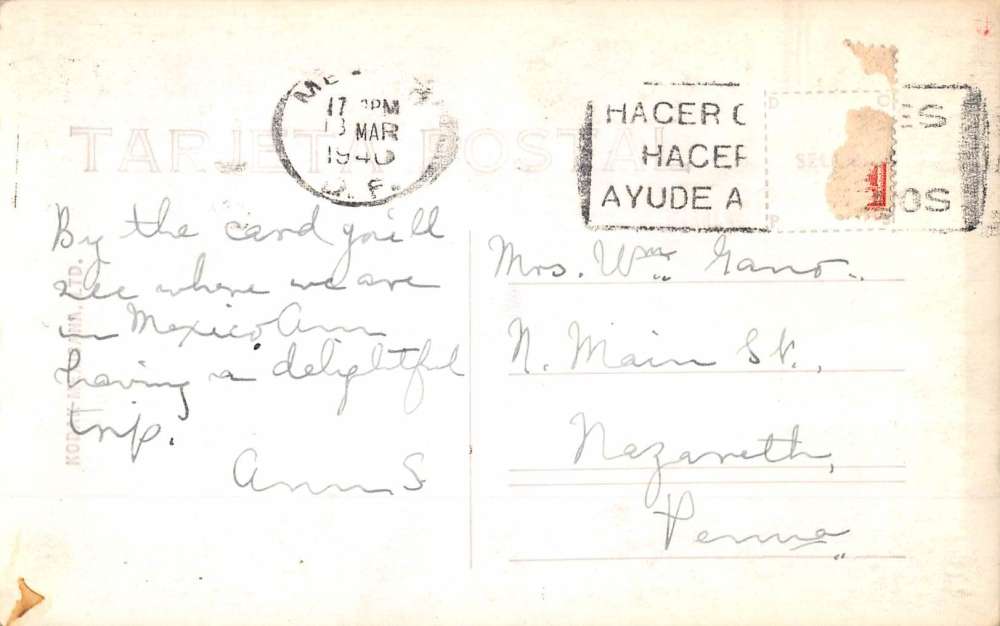 TARJETA POSTAL
17 PM
13 MAR
D. F.
HACER
HACER
AYUDE A
ES
OS
By the card you'll
see where we are
in Mexico. Am
having a delightful
trip.
Ann S
Mrs. Wm. Gano.
N. Main St.,
Nazareth,
Penna